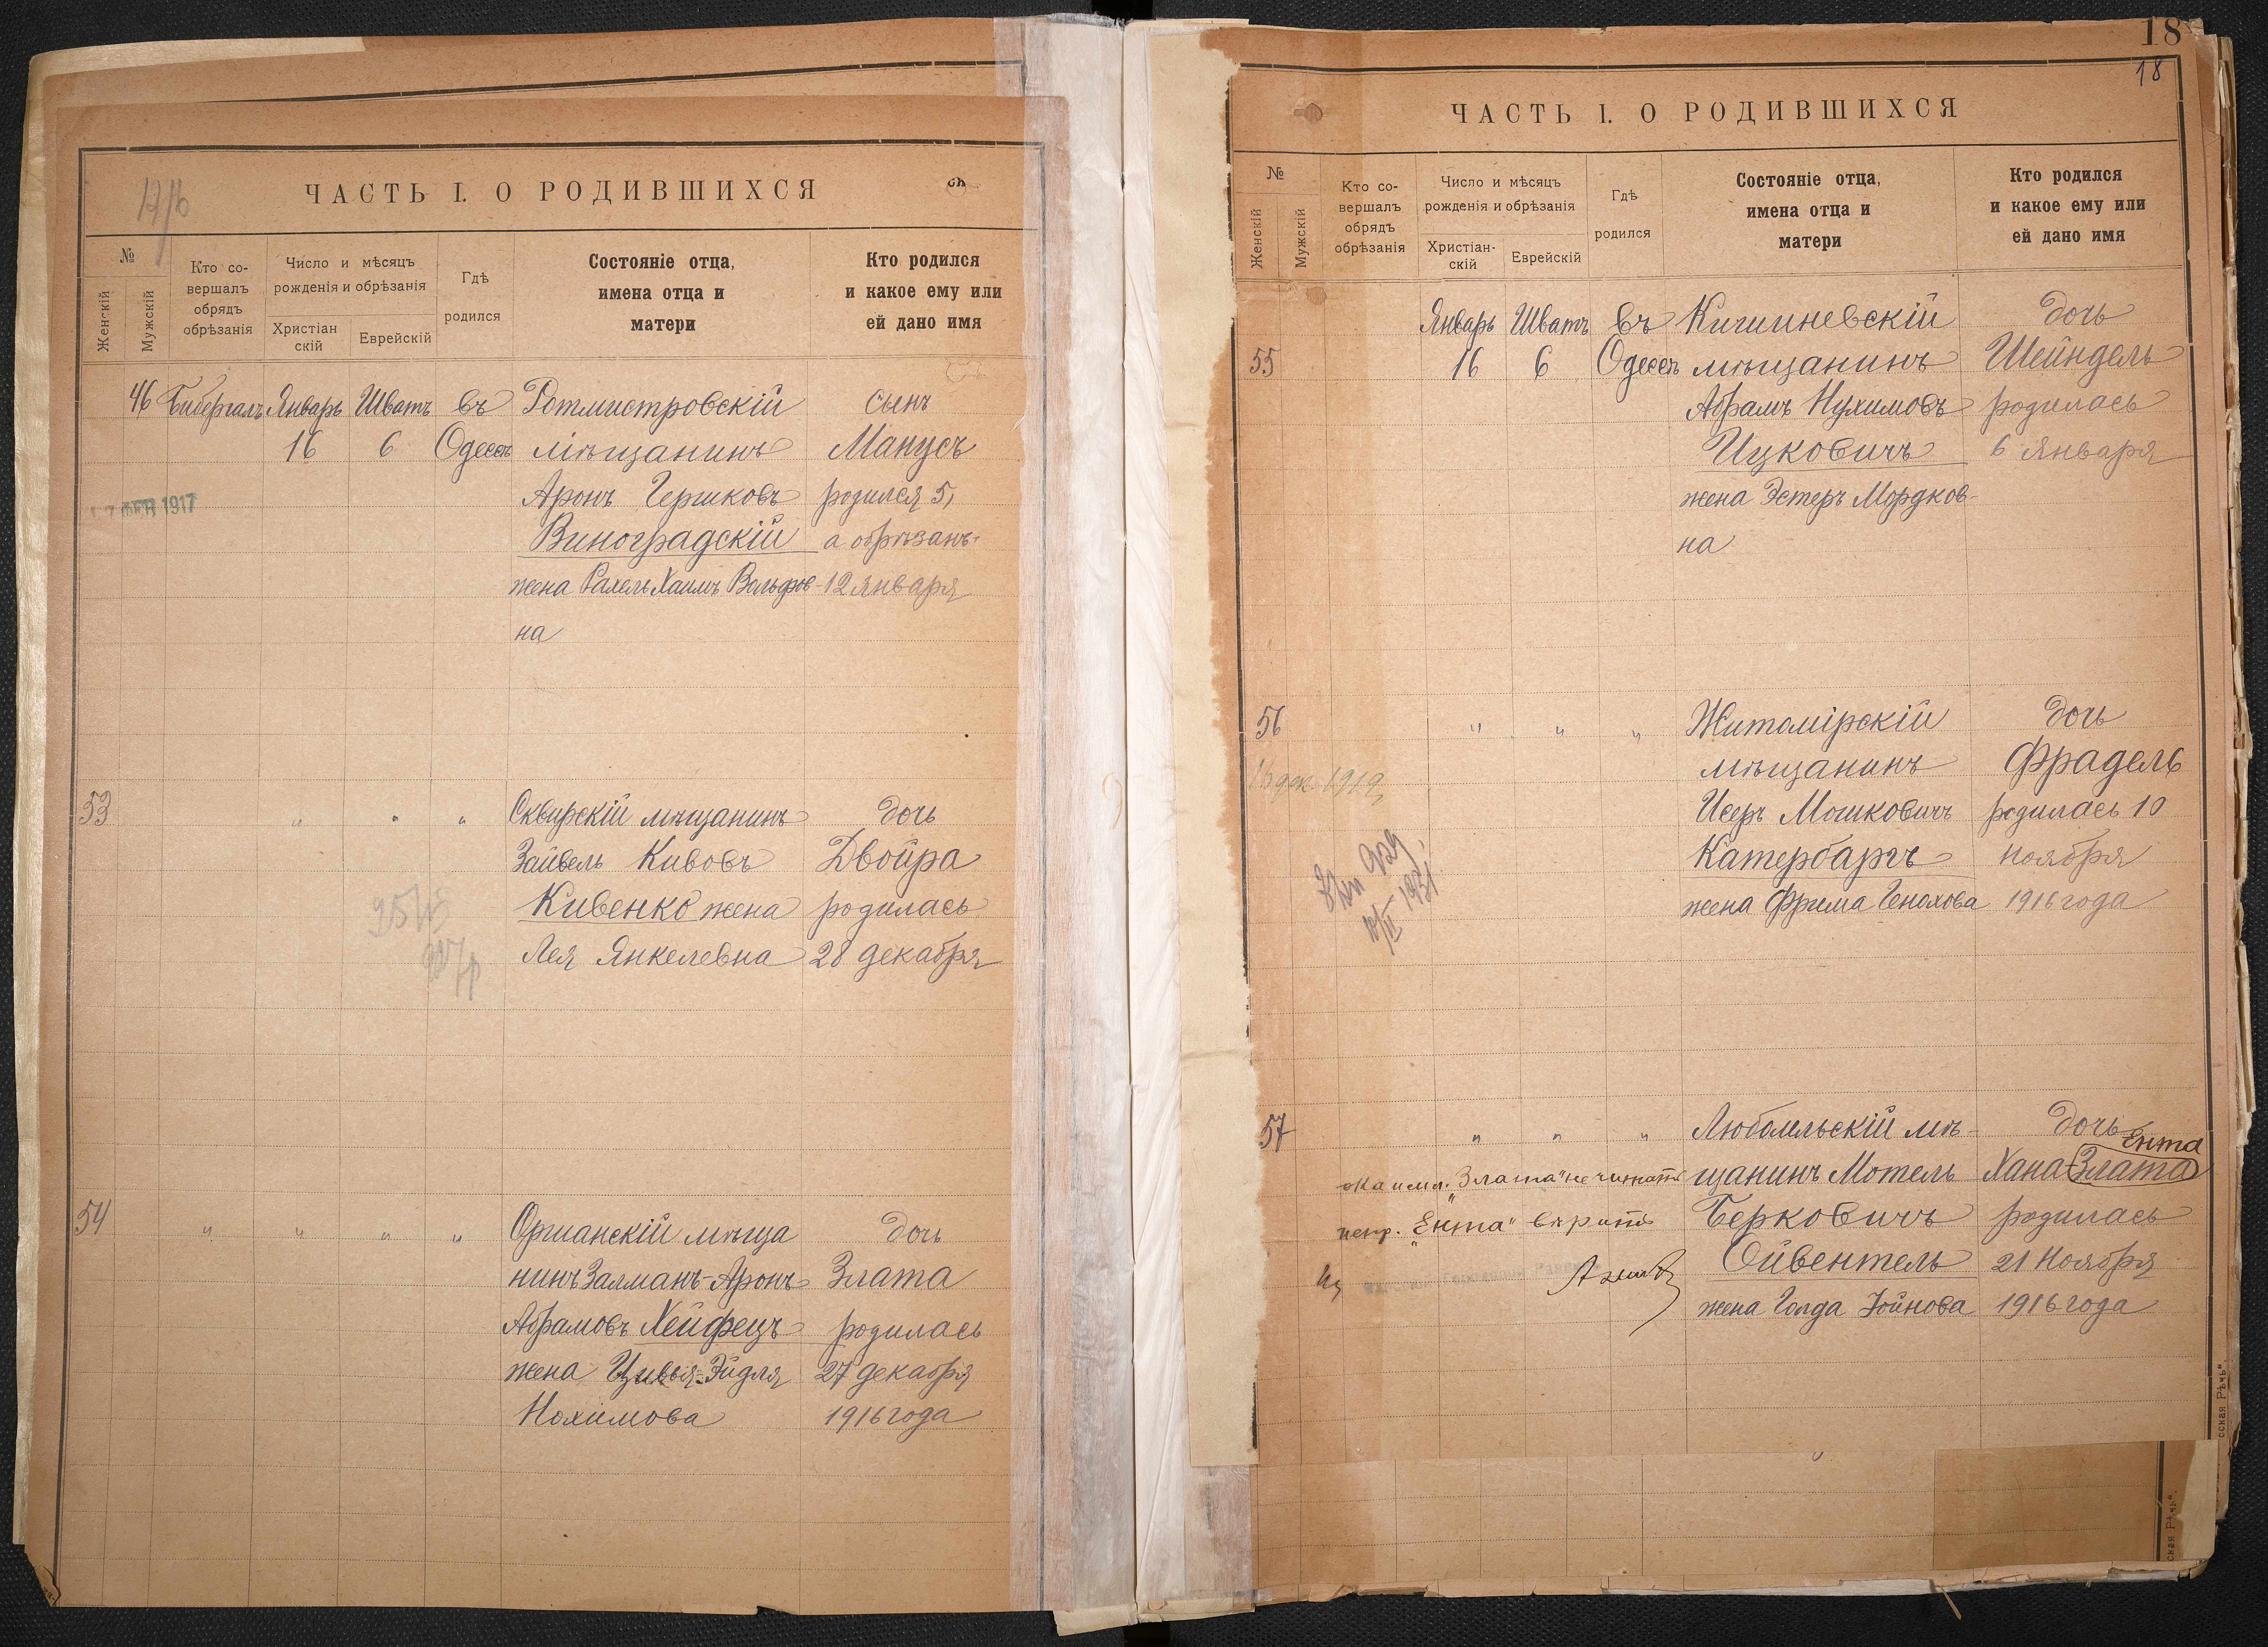 ЧАСТЬ I. О РОДИВШИХСЯ
№
Женскій
Мужскій
Кто со-
вершалъ
обрядъ
обрѣзанія
Число и мѣсяцъ
рожденія и обрѣзанія
Христіан
скій
Еврейскій
Гдѣ
родился
Состояніе отца,
имена отца и
матери
Кто родился
и какое ему или
ей дано имя
46 Бибергалъ Январь Шватъ въ Ротмистровскій сынъ
16 6 Одессѣ мѣщанинъ Манусъ
Аронъ Гершковъ родился 5,
ФЕВ 1917
Виноградскій а обрѣзанъ
жена Рахель Хаимъ Вольфов- 12 января
на
53 " " " Сквирскій мѣщанинъ дочь
Зайвель Кивовъ Двойра
Кивенко жена родилась
Лея Янкелевна 28 декабря
54 " " " " Оргианскій мѣща дочь
нинъ Залманъ-Аронъ Злата
Абрамовъ Хейфецъ родилась
жена Цивья-Эйдля 27 декабря
Нохимова 1916 года
18
18
ЧАСТЬ I. О РОДИВШИХСЯ
№
Женскій
Мужскій
Кто со-
вершалъ
обрядъ
обрѣзанія
Число и мѣсяцъ
рожденія и обрѣзанія
Христіан-
скій
Еврейскій
Гдѣ
родился
Состояніе отца,
имена отца и
матери
Кто родился
и какое ему или
ей дано имя
Январь Шватъ въ Кишиневскій дочь
55 16 6 Одессѣ мѣщанинъ Шейндель
Абрамъ Нухимовъ родилась
Ицковичъ 6 января
жена Эстеръ Мордков-
на
56 " " " Житомірскій дочь
мѣщанинъ Фрадель
дек. 1919
Исеръ Мошковичъ родилась 10
Катербаргъ ноября
жена Фрима Генохова 1916 года
1931
57 " " " Любомльскій мѣ- дочь
Ента
щанинъ Мотель Хана-Злата
"Злата" не читать
"Ента" вѣрить
Берковичъ родилась
Ойвентель 21 Ноября
жена Голда Іойнова 1916 года